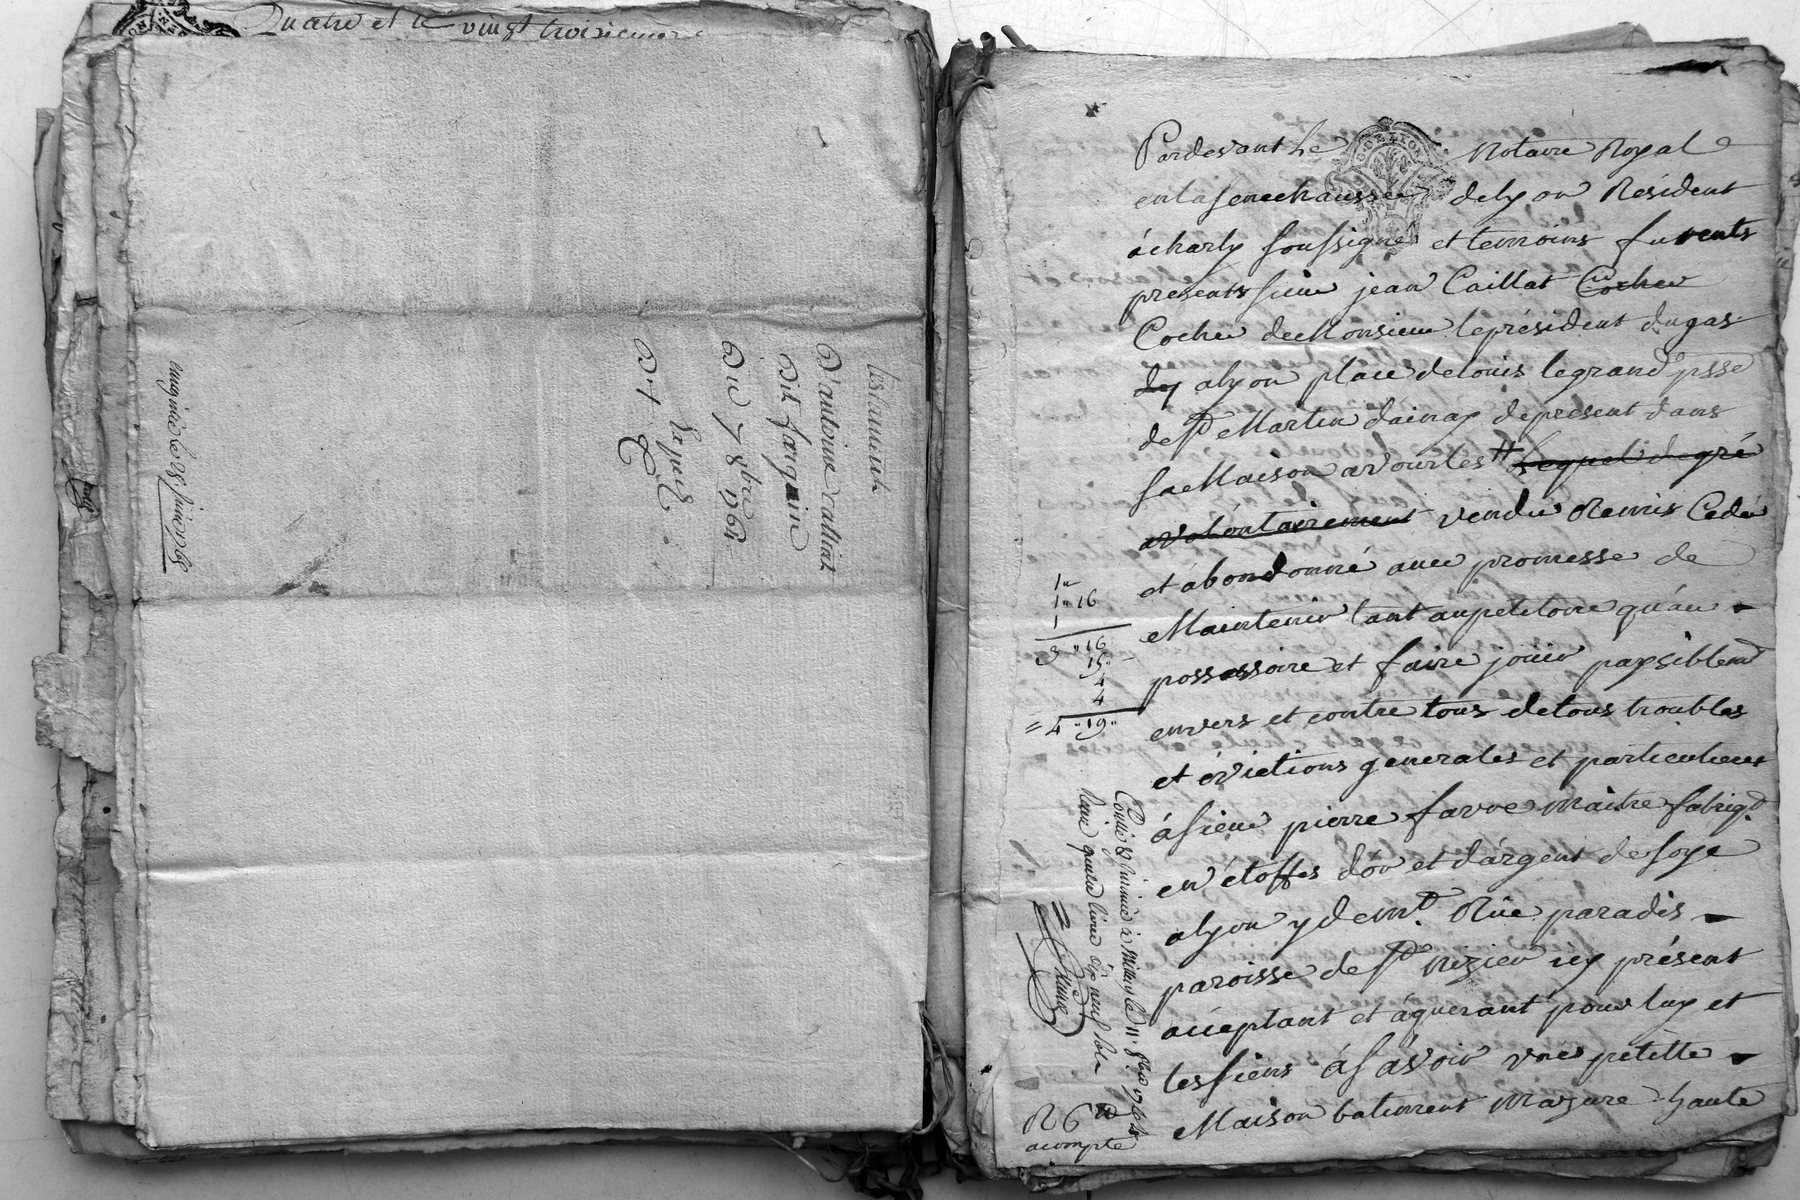 Quatre et le vingt troisieme
testament
D'antoine valliat
dit fargaine
Du 7 8bre 1761
Pardevant Le Notaire Royal
enlasenechaussée delyon Résident
àcharly soussigné et temoins furents
presents sieur jean Caillat Cocher
Cocher deMonsieur leprésident dugas
dy alyon place delouis legrand psse
de st Martin dainay depresent dans
saMaison avourles # lequel degré
avolontairement vendu Remis Cedé
et abondonné avec promesse de
Maintenir tant aupetitoire qu'au
possessoire et faire jouir paysiblemt
envers et contre tous detous troubles
et évictions generales et particulieres
àsieur pierre favre maitre fabriqt
en étoffes d'or et d'argent de soye
alyon y demt Rüe paradis
paroisse de st Nizier icy présent
acceptant et aquerant pour luy et
les siens àsavoir une petitte
Maison batiment Mazure haute
1"
1" 16
1
3 " 16
15"
4
4
= 4 " 19"
R 6 d
acompte